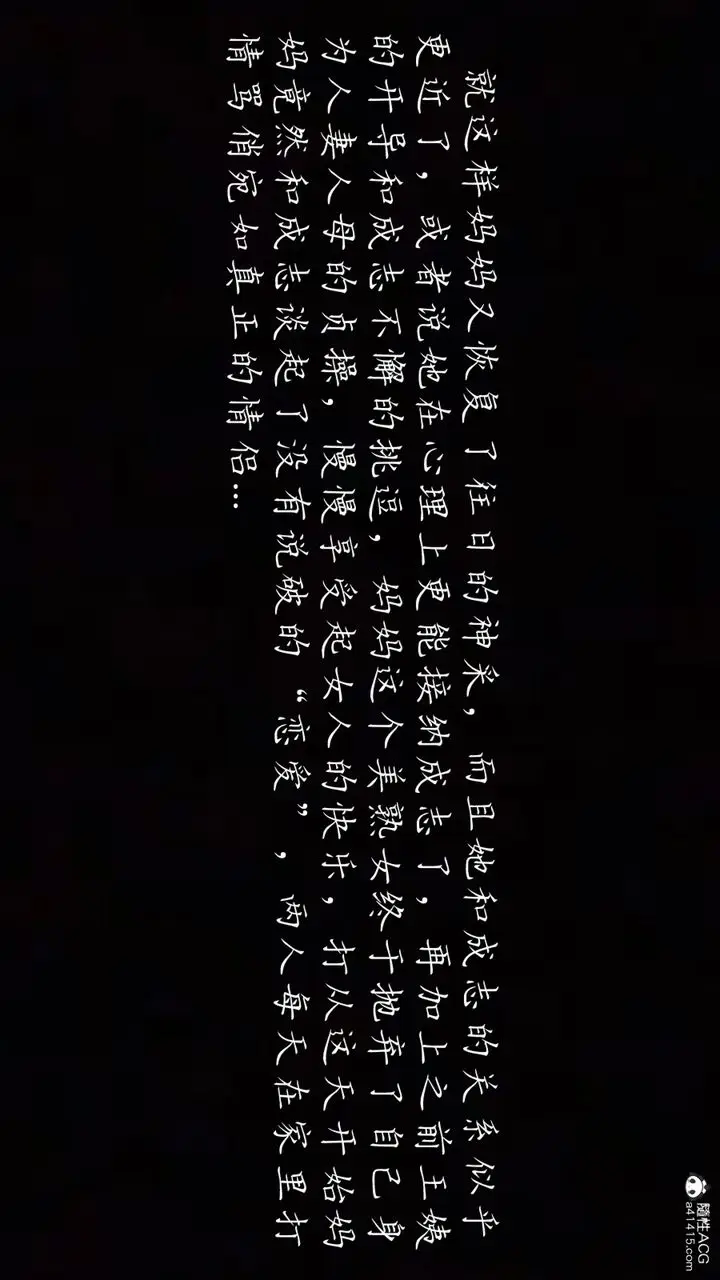 就这样妈妈又恢复了往日的神采，而且她和成志的关系似乎
更近了，或者说她在心理上更能接纳成志了，再加上之前王姨
的开导和成志不懈的挑逗，妈妈这个美熟女终于抛弃了自己身
为人妻人母的贞操，慢慢享受起女人的快乐，打从这天开始妈
妈竟然和成志谈起了没有说破的“恋爱”，两人每天在家里打
情骂俏宛如真正的情侣...
隨性ACG
a41415.com